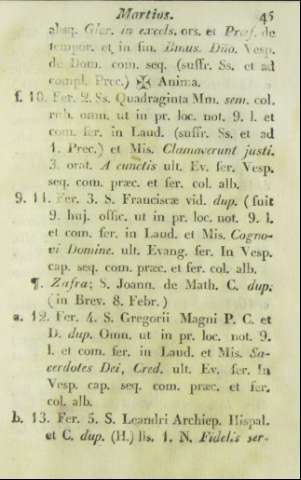 Martius. 45
absq. Glor. in excels. ors. et Præf. de
tempor. et in fin. Bmus. Dño. Vesp.
de Dom. com. seq. (suffr. Ss. et ad
compl. Prec.) ✠ Anima.
f. 10. Fer. 2. Ss. Quadraginta Mm. sem. col.
rub. omn. ut in pr. loc. not. 9. l. et
com. fer. in Laud. (suffr. Ss. et ad
1. Prec.) et Mis. Clamaverunt justi.
3. orat. A cunctis ult. Ev. fer. Vesp.
seq. com. præc. et fer. col. alb.
9. 11. Fer. 3. S. Franciscæ vid. dup. (fuit
9. huj. offic. ut in pr. loc. not. 9. l.
et com. fer. in Laud. et Mis. Cogno-
vi Domine. ult. Evang. fer. In Vesp.
cap. seq. com. præc. et fer. col. alb.
¶. Zafra; S. Joann. de Math. C. dup.
(in Brev. 8. Febr.)
a. 12. Fer. 4. S. Gregorii Magni P. C. et
D. dup. Omn. ut in pr. loc. not. 9.
l. et com. fer. in Laud. et Mis. Sa-
cerdotes Dei, Cred. ult. Ev. fer. In
Vesp. cap. seq. com. præc. et fer.
col. alb.
b. 13. Fer. 5. S. Leandri Archiep. Hispal.
et C. dup. (H.) lis. 1. N. Fidelis ser-